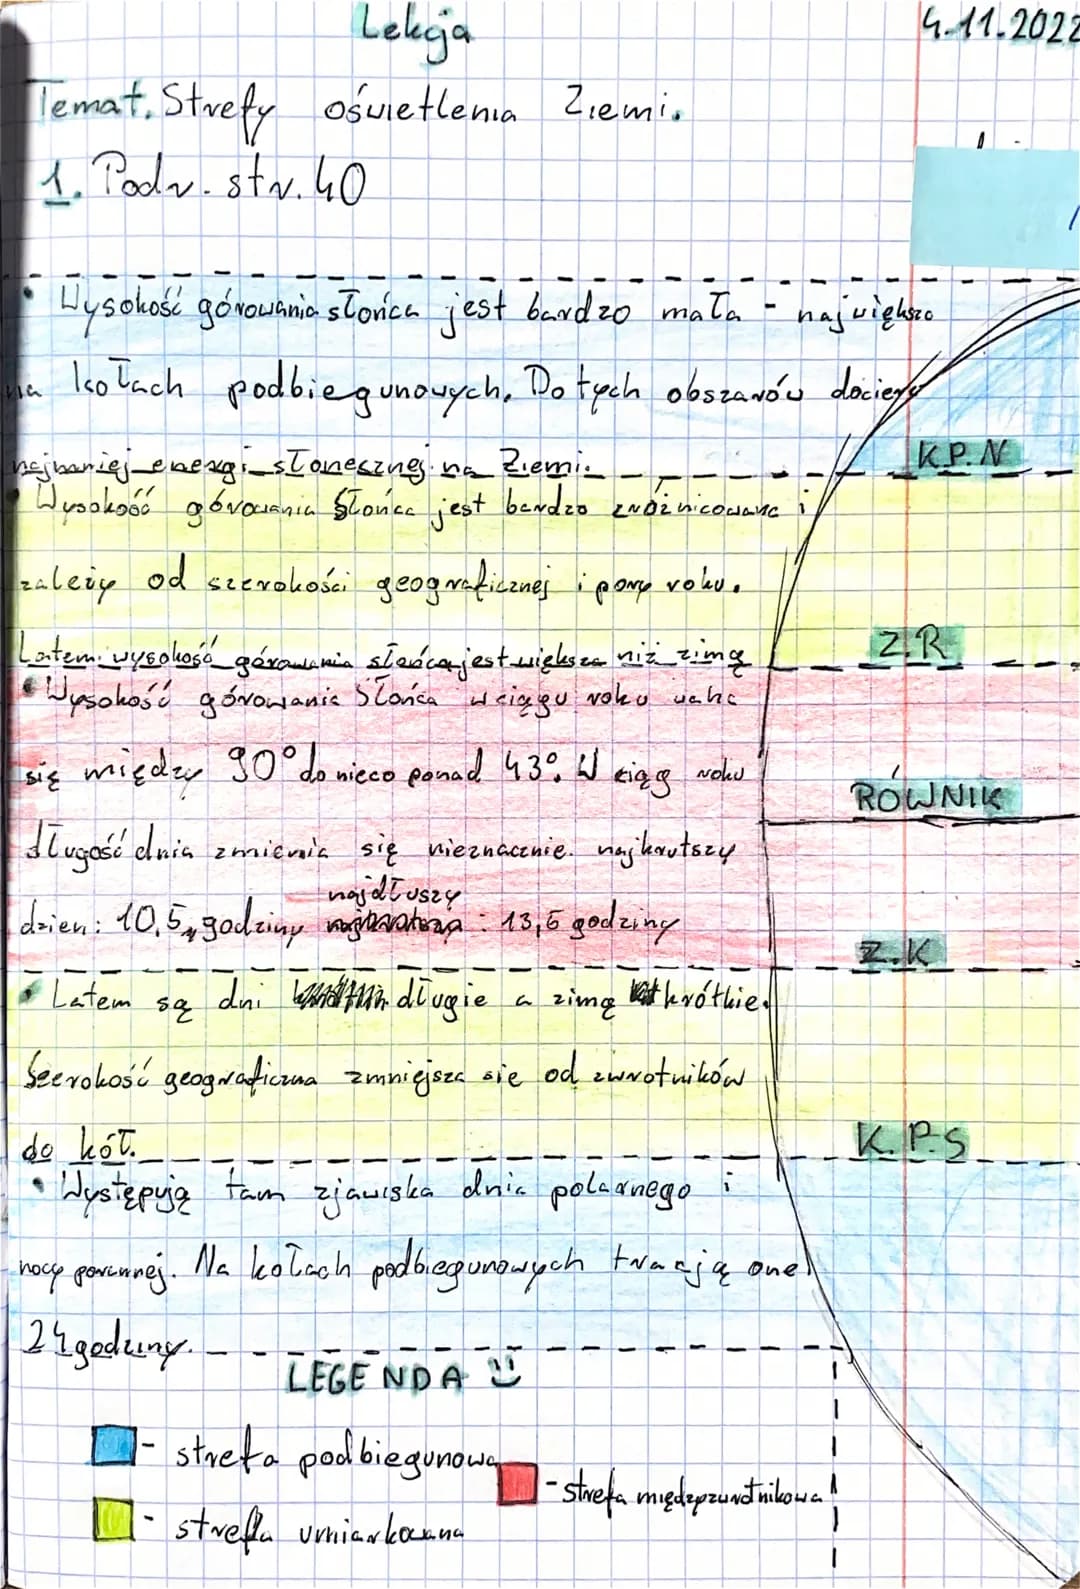 Lekcja
4.11.2022
Temat. Strefy oświetlenia Ziemi.
1. Podr. str. 40
• Wysokość górowania słońca jest bardzo mała - największa
na kołach podbiegunowych. Do tych obszarów dociera
K.P.N
najmniej energi słonecznej na Ziemi.
• Wysokość górowania Słońca jest bardzo zróżnicowana i
zależy od szerokości geograficznej i pory roku.
Z.R
Latem wysokość górowania słońca jest większa niż zimą
• Wysokość górowania Słońca w ciągu roku waha
się między 90° do nieco ponad 43°. W ciąg roku
RÓWNIK
długość dnia zmienia się nieznacznie. najkrutszy
najdłuszy
dzien: 10,5 godziny : 13,5 godziny
Z.K
• Latem są dni długie a zimą krótkie.
Szerokość geograficzna zmniejsza sie od zwrotników
do kół.
K.P.S
• Występują tam zjawiska dnia polarnego i
nocy porannej. Na kołach podbiegunowych trwają one
24 godziny.
LEGENDA
- strefa podbiegunowa
- strefa międzyzwrotnikowa
- strefa umiarkowana